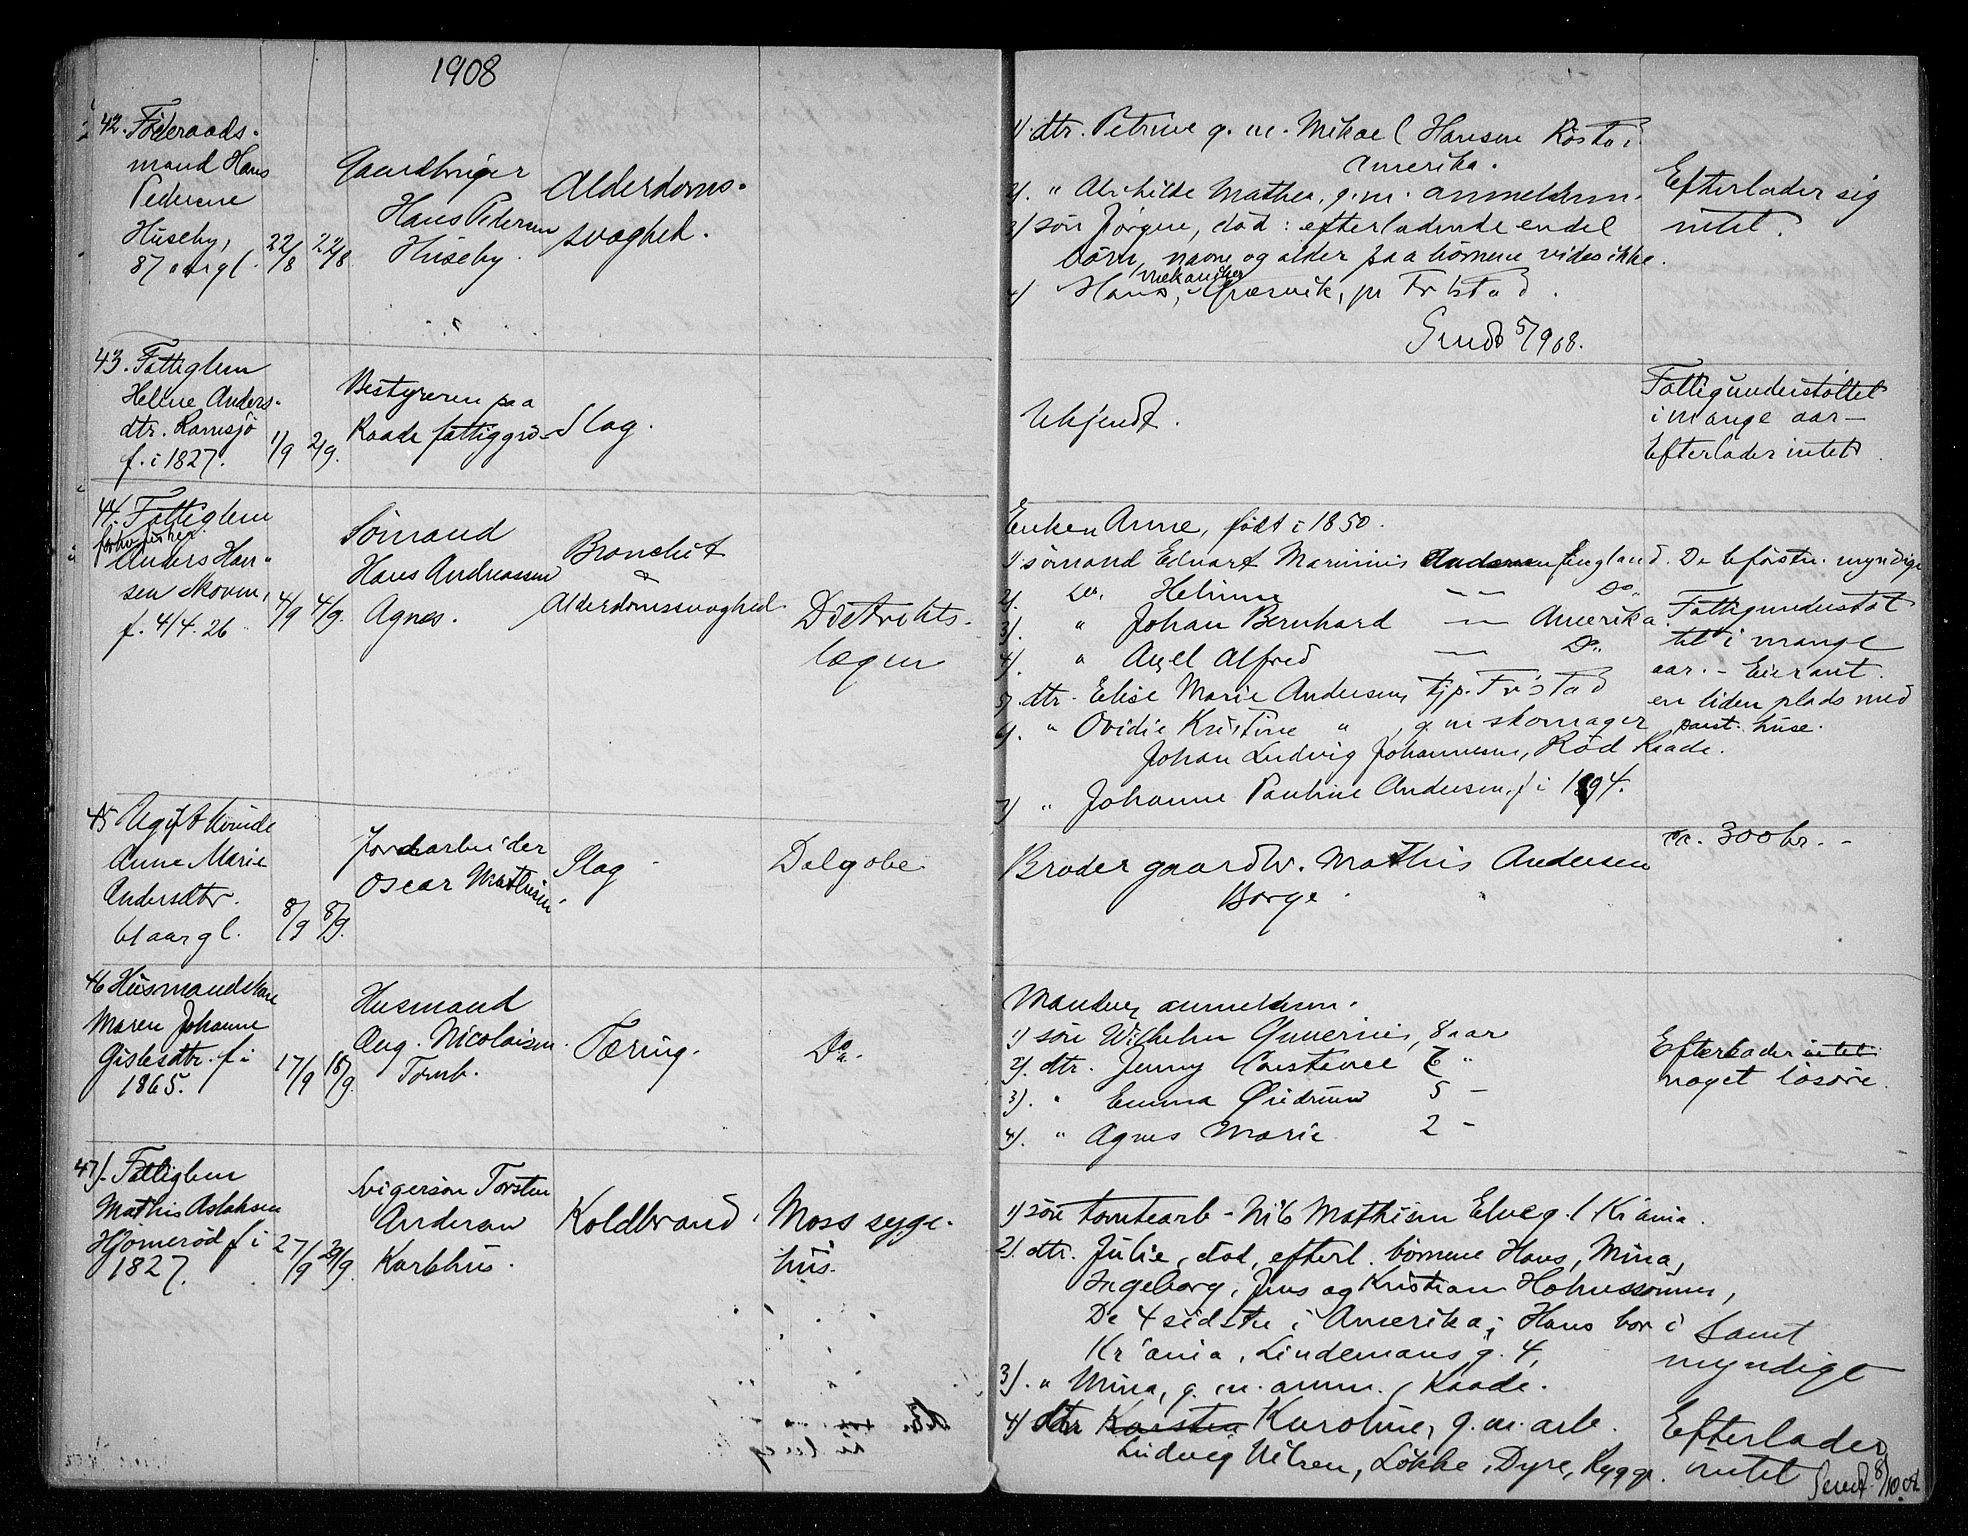 1908
42. Föderaads-
mand Hans
Pedersen
Huseby,
87 aar gl.
22/8
22/8
Gaardbruger
Hans Pedersen
Huseby.
Alderdoms-
svaghed.
1) dtr. Petrine g. m. Mikael Hansen Rösto i
Amerika.
2). " Mathea, g. m. anmelderen.
3) sön Jörgen, död: efterladende endel
börn, navne og alder paa börnene vides ikke.
4) Hans, mekaniker, Græsvik, pr Fr'stad.
Sendt 5/9 08.
Efterlader sig
intet.
43. Fattiglem
Helene Anders-
dtr. Ramsjö
f. i 1827.
1/9
2/9.
Bestyreren paa
Raade fattiggrd.
Slag.
Ukjendt.
Fattigunderstöttet
i mange aar –
Efterlader intet.
44. Fattiglem
forhv. fisker
Anders Han-
sen Skoven,
f. 4/4. 26
4/9
4/9.
Sömand
Hans Andreassen
Agnes.
Bronchit
&
Alderdomssvaghed.
Distrikts-
lægen
Enken Anne, födt i 1850.
1) sömand Edvart Marinius Andersen England.
2). Do. Helmer – " – Do.
3). " Johan Bernhard – " – Amerika.
4). " Axel Alfred – " – Do.
5). dtr. Elise Marie Andersen, tj. p. Fr'stad
6). " Ovidie Kristine " , g m skomager
Johan Ludvig Johannesen, Röd Raade.
7) " Johanne Pauline Andersen, f i 1894.
De 6 förstn. myndige
Fattigunderstöt
tet i mange
aar. – Eier ant.
en liden plads med
pant. huse.
45 Ugift kvinde
Anne Marie
Andersdtr.
61 aar gl.
8/9
8/9.
Jordarbeider
Oscar Mathisen
Slag
Dalgobe
Broder gaardbr. Mathis Andersen
Borge.
ca. 300 kr. –
46 Husmandskone
Maren Johanne
Gislesdtr. f i
1865.
17/9
18/9.
Husmand
Aug. Nicolaisen.
Tomb.
Tæring.
Do.
Manden, anmelderen.
1) sön Wilhelm Gunerius, 8 aar
2). dtr. Jenny Constance 6 "
3). " Emma 5 –
4). " Agnes Marie 2 –
Efterlader intet
noget lösöre.
47). Fattiglem
Mathis Aslaksen
Hjomeröd f i
1827.
27/9
29/9.
Svigersön Torsten
Andersen
Karlshus.
Koldbrand.
Moss syge-
hus.
1) sön tomtearb - Nils Mathisen Elveg. 1 Kr'ania.
2). dtr. Julie, död, efterl. börnene Hans, Mina,
Ingeborg, Jens og Kristian
De 4 sidste i Amerika; Hans bor i
Kr'ania, Lindemans g. 4,
3). " Mina, g. m. anm., Raade.
4) dtr Karsten Karoline, g. m. arb.
Ludvig Nilsen, Lökke, Dyre, Rygge.
Samt
myndige
Efterlader
intet
Sendt 8/10 08.